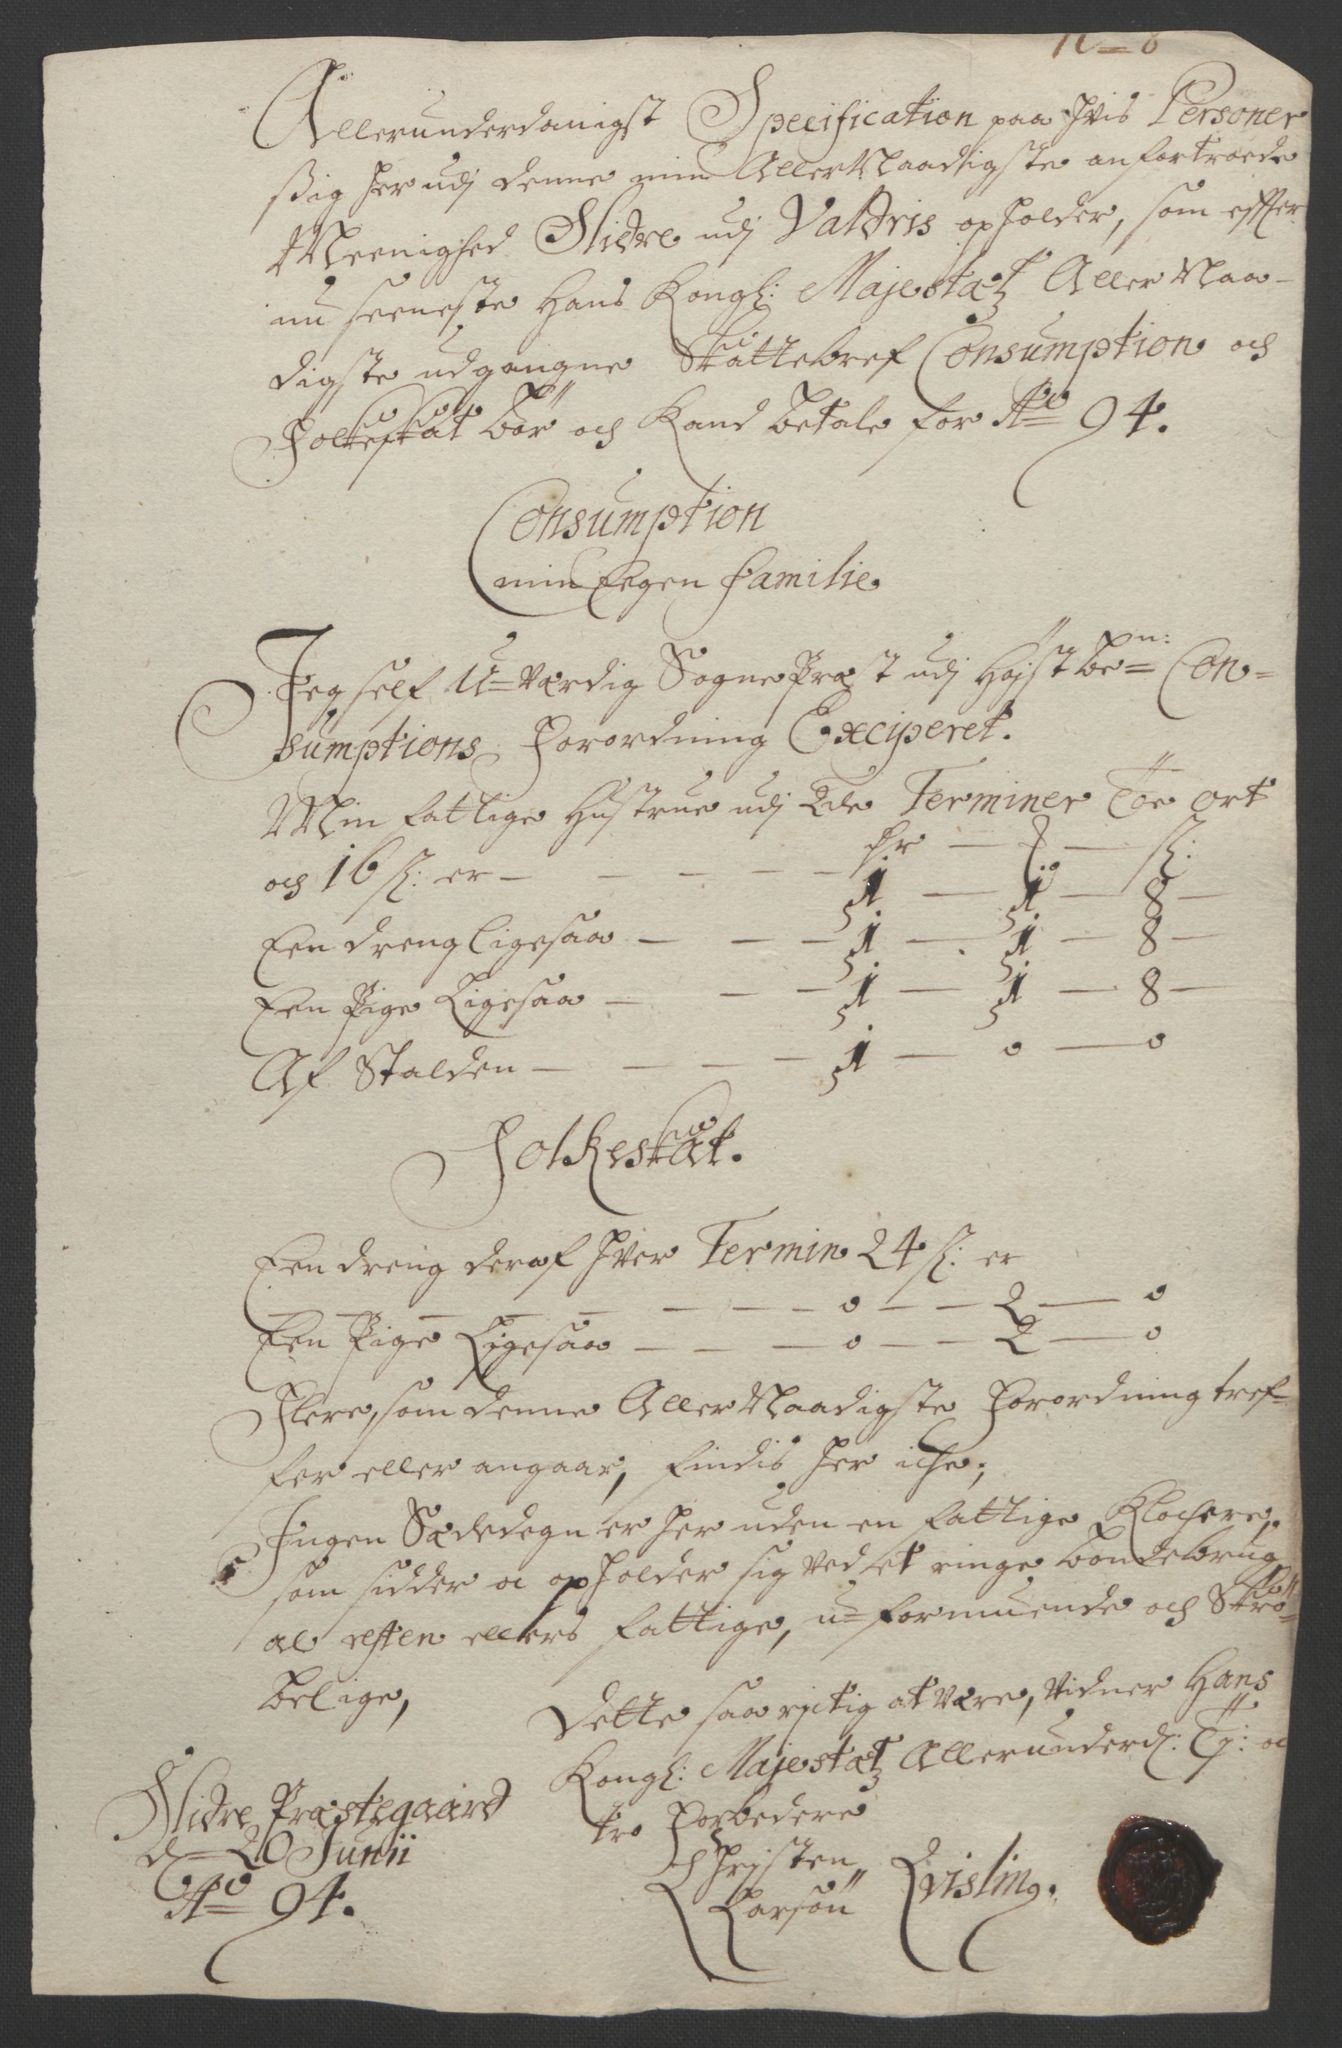 Allerunderdanigst Specification paa hvis Personer
sig her udj denne min AllerNaadigste anfortroede
Meenighed Slidre udj Valdris opholder, som effter
nu seeneste Hans Kongl: Majestætz AllerNaa-
digste udgangne Skattebref Consumption och
Folkeskat bör och Kand betale for Ao 94.
Consumption
min Eegen familie
Jeg self U-værdig SognePræst udj Højstbe-n: Con-
sumptions Forordning Exciperet.
Min fattige Hustrue udj 2de Terminer Toe ort
och 16 s: er - - - - - dr - - s:
1 - 1 - 8 -
Een dreng ligesaa - - - 1 - 1 - 8 -
Een Pige Ligesaa - - - 1 - 1 - 8 -
Af Stalden - - - - 1 - 0 - 0
Folkeskat.
Een dreng deraf hver Termin 24 s: er
- - - - - - - 0 - - 2 - 0
Een Pige Ligesaa - - - 0 - - 2 - 0
Flere, som denne AllerNaadigste Forordning tref-
fer eller angaar, findis her iche;
Ingen Sædedegn er her uden en fattige Klochere,
som sidder oc opholder sig ved et ringe bondebrug
al resten ellers fattige, u-formuende och Skrø-
belige,
Dette saa rictig at være, vidner Hans
Kongl: Majestætz Allerunderd: Tj: oc
tro Forbedere
Slidre Præstegaard
d- 20 Junii
Ao 94.
Christen
Larsön Qvisling.